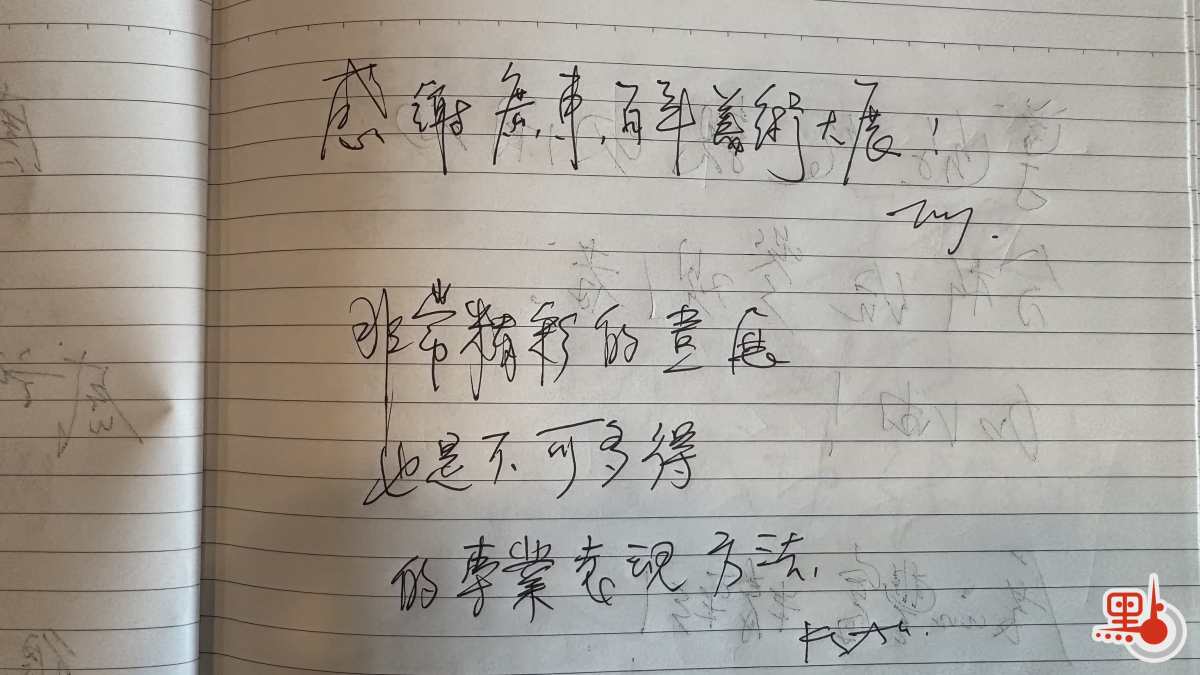 感謝廣東百年美術大展！
非常精彩的畫展
也是不可多得
的專業表現方法.
點